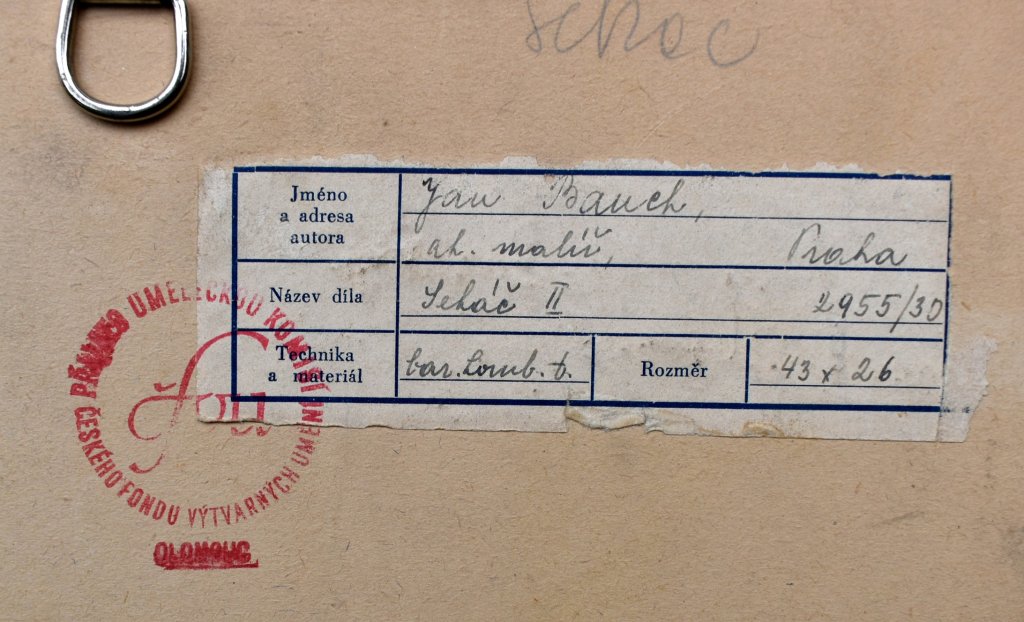 Jméno
a adresa
autora
Jan Bauch,
ak. malíř, Praha
Název díla
Sekáč II 2955/30
Technika
a materiál
bar. komb. t.
Rozměr
43 x 26
UMĚLECKOU KOMISÍ
ČESKÉHO FONDU VÝTVARNÝCH UMĚNÍ
OLOMOUC